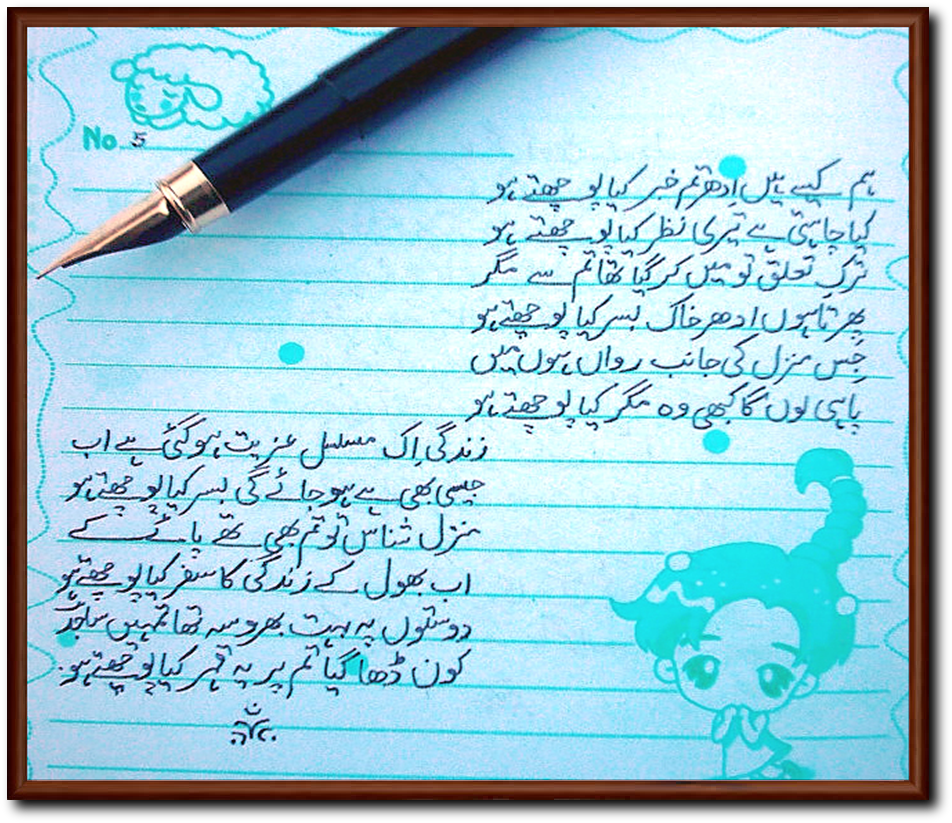 No. 5
ہم کیسے ہیں اِدھر تم خبر کیا پوچھتے ہو
کیا چاہتی ہے تیری نظر کیا پوچھتے ہو
ترکِ تعلق تو میں کر گیا تھا تم سے مگر
پھرتا ہوں ادھر خاک بسر کیا پوچھتے ہو
جِس منزل کی جانب رواں ہوں میں
پا ہی لوں گا کبھی وہ مگر کیا پوچھتے ہو
زندگی اِک مسلسل عزیت ہو گئی ہے اب
جیسی بھی ہے ہو جائے گی بسر کیا پوچھتے ہو
منزل شناس تو تم بھی تھے
اب بھول کے زندگی کا سفر کیا پوچھتے ہو
دوستوں پہ بہت بھروسہ تھا تمہیں ساجد
کون ڈھا گیا تم پر یہ قہر کیا پوچھتے ہو۔